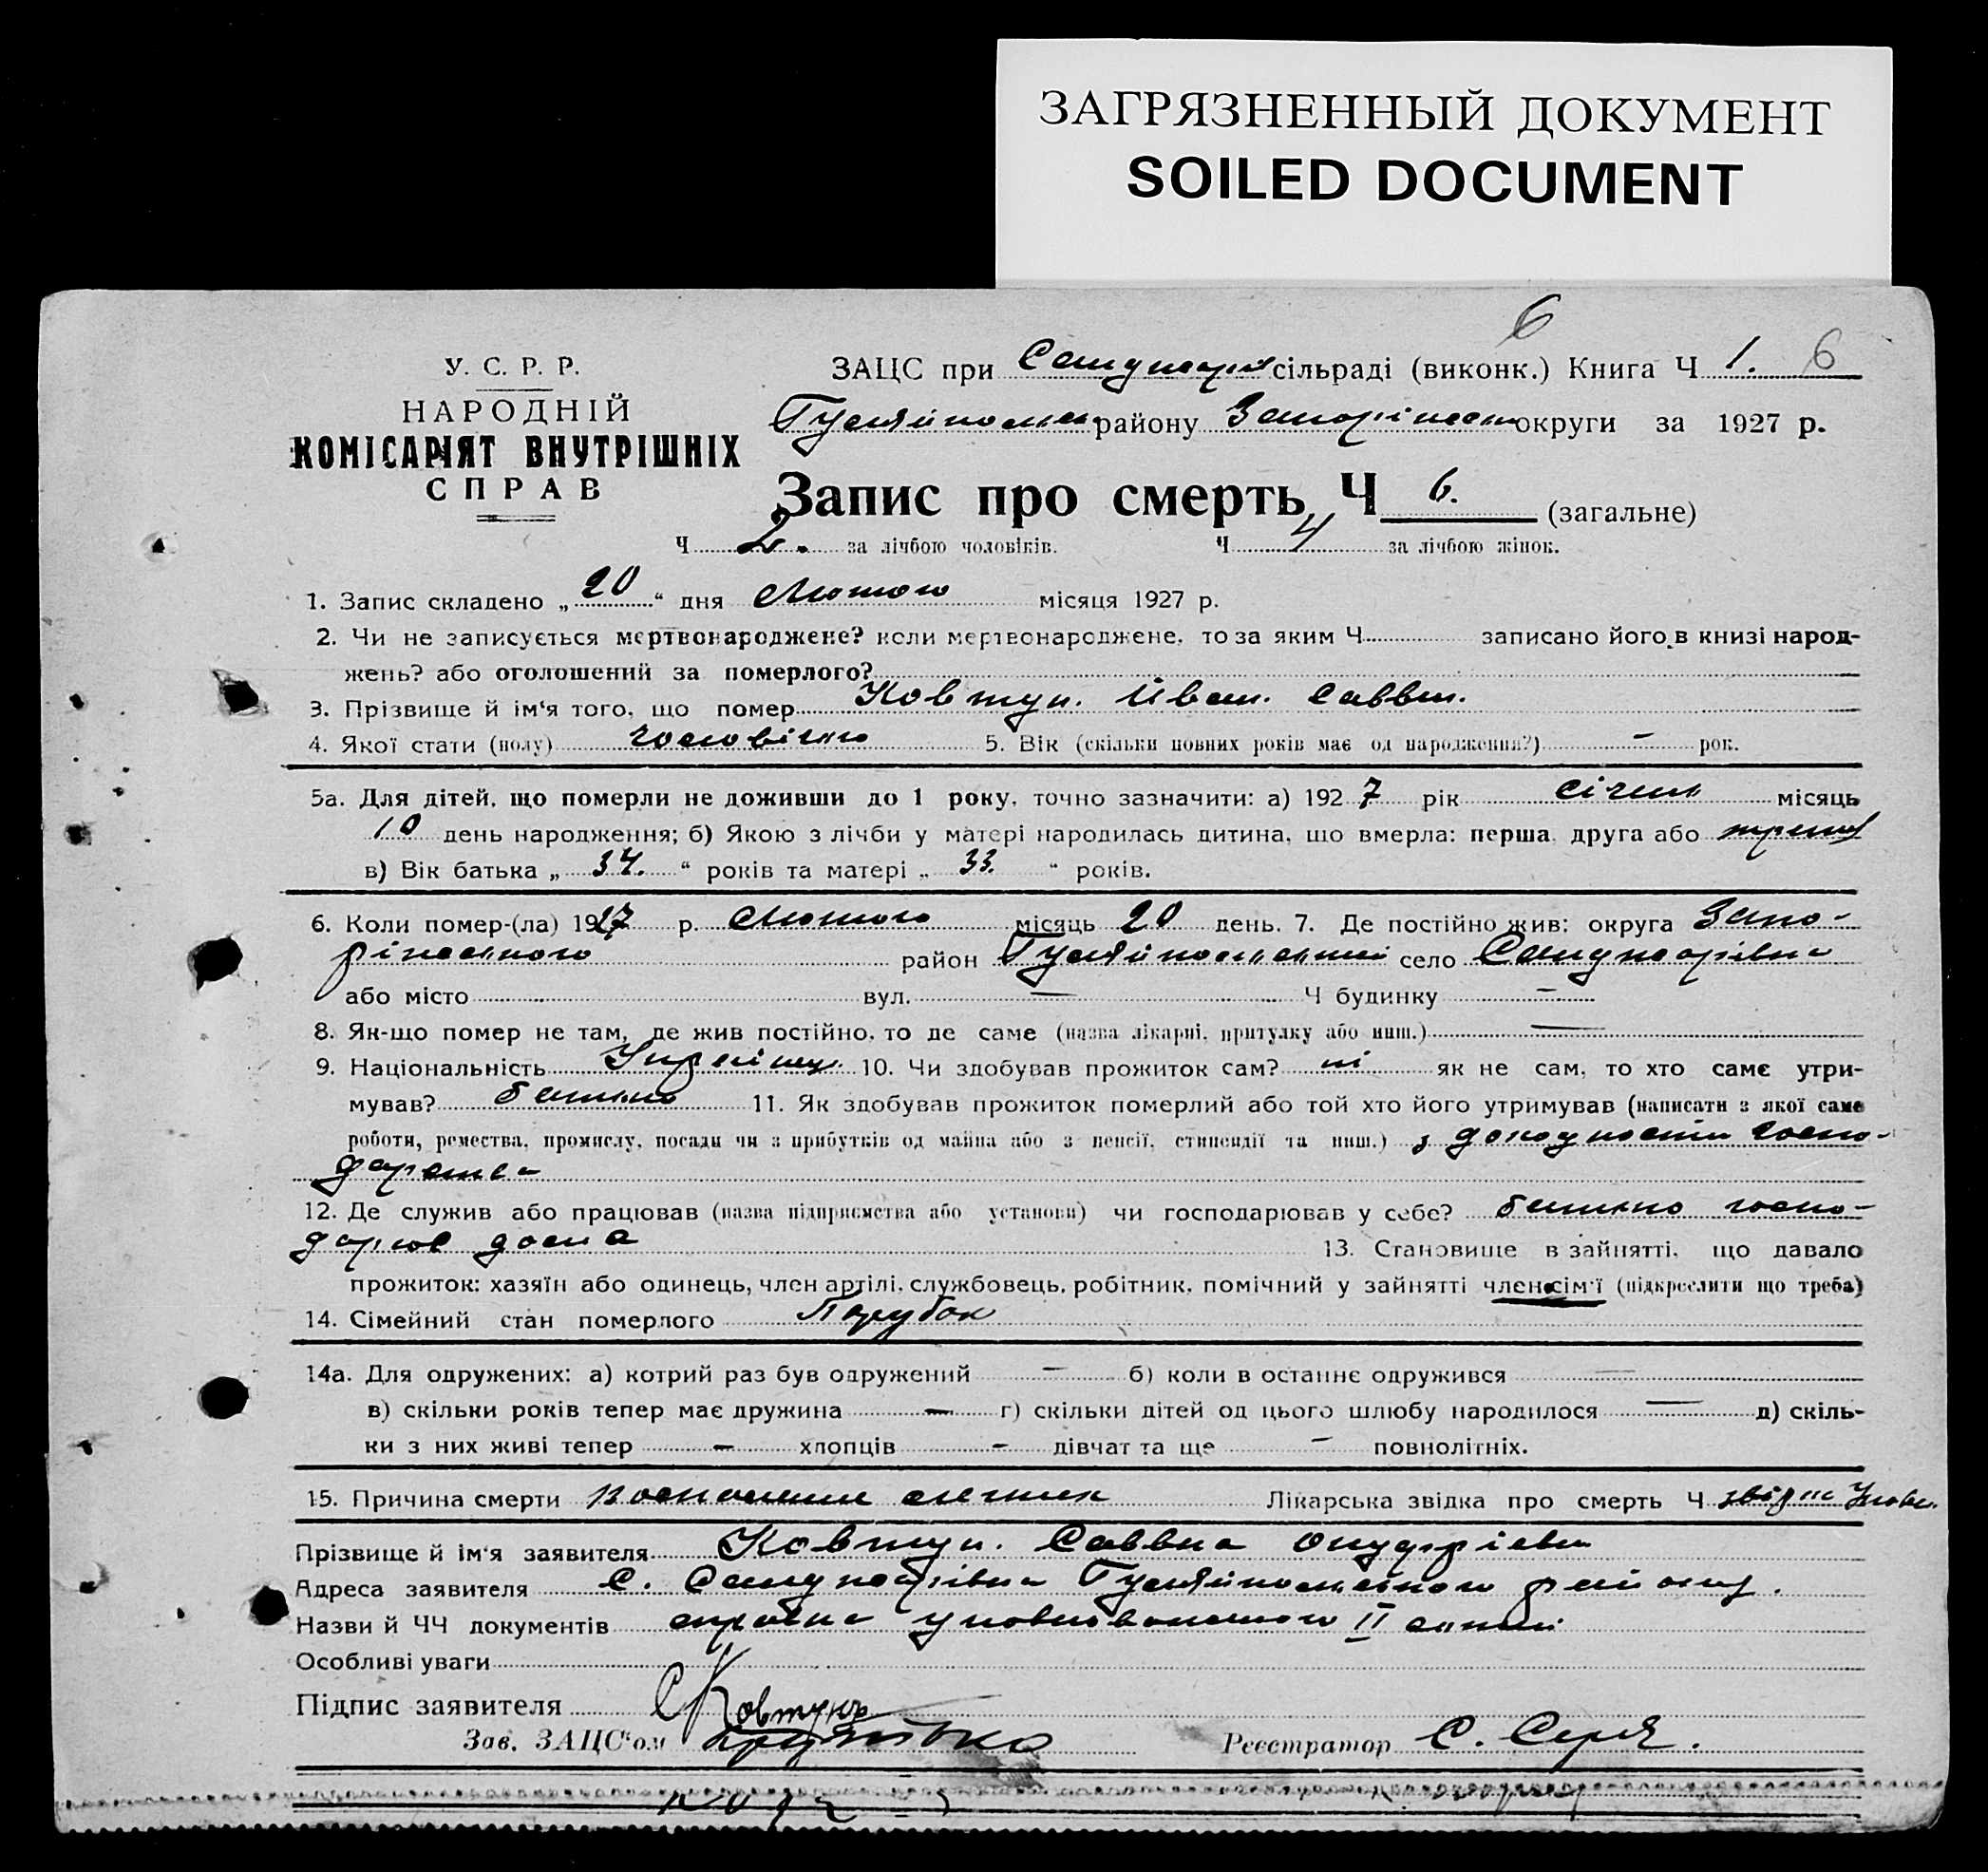 ЗАГРЯЗНЕННЫЙ ДОКУМЕНТ
SOILED DOCUMENT
6
У. С. Р. Р.
НАРОДНІЙ
КОМІСАРІЯТ ВНУТРІШНІХ
СПРАВ
ЗАЦС при сільраді (виконк.) Книга Ч 1. 6
району округи за 1927 р.
Запис про смерть Ч 6. (загальне)
Ч 2. за лічбою чоловіків. Ч 4 за лічбою жінок.
1. Запис складено „20“ дня Лютого місяця 1927 р.
2. Чи не записується мертвонароджене? коли мертвонароджене, то за яким Ч записано його в книзі народ-
жень? або оголошений за померлого?
3. Прізвище й ім'я того, що помер Ковтун. Иван. Саввич.
4. Якої стати (полу) 5. Вік (скільки повних років має од народження?) - рок.
5а. Для дітей, що померли не доживши до 1 року, точно зазначити: а) 1927 рік січень місяць
10 день народження; б) Якою з лічби у матері народилась дитина, що вмерла: перша, друга або
в) Вік батька „34.“ років та матері „33.“ років.
6. Коли помер-(ла) 1927 р. Лютого місяць 20 день. 7. Де постійно жив: округа Запо-
ріжського район село
або місто вул. — Ч будинку —
8. Як-що помер не там, де жив постійно, то де саме (назва лікарні, притулку або инш.) —
9. Національність 10. Чи здобував прожиток сам? ні як не сам, то хто саме утри-
мував? батько 11. Як здобував прожиток померлий або той хто його утримував (написати з якої саме
роботи, ремества, промислу, посади чи з прибутків од майна або з пенсії, стипендії та инш.) з госпо-
дарства
12. Де служив або працював (назва підприємства або установи) чи господарював у себе? батько госпо-
дарював дома 13. Становище в зайнятті, що давало
прожиток: хазяїн або одинець, член артілі, службовець, робітник, помічний у зайнятті член сім'ї (підкреслити що треба)
14. Сімейний стан померлого Парубок
14а. Для одружених: а) котрий раз був одружений — б) коли в останнє одружився —
в) скільки років тепер має дружина — г) скільки дітей од цього шлюбу народилося — д) скіль-
ки з них живі тепер — хлопців — дівчат та ще — повнолітніх.
15. Причина смерти Лікарська звідка про смерть Ч
Прізвище й ім'я заявителя Ковтун. Савва
Адреса заявителя с.
Назви й ЧЧ документів II
Особливі уваги
Підпис заявителя С Ковтунъ
Зав. ЗАЦС'ом Реєстратор С.